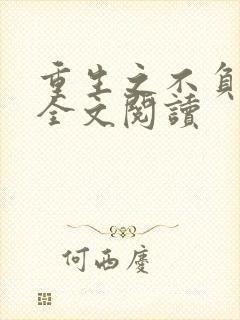 重生之不負
全文閱讀
何西慶